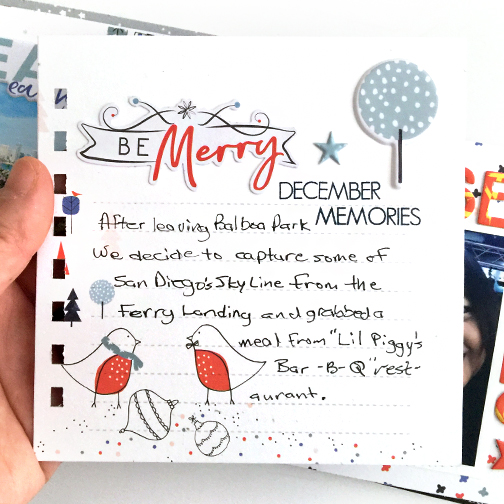 BE Merry
DECEMBER
MEMORIES
After leaving Balboa Park
We decide to capture some of
San Diego's SkyLine From the
Ferry Landing and grabbed a
meal from "Lil Piggy's
Bar-B-Q" rest-
aurant.